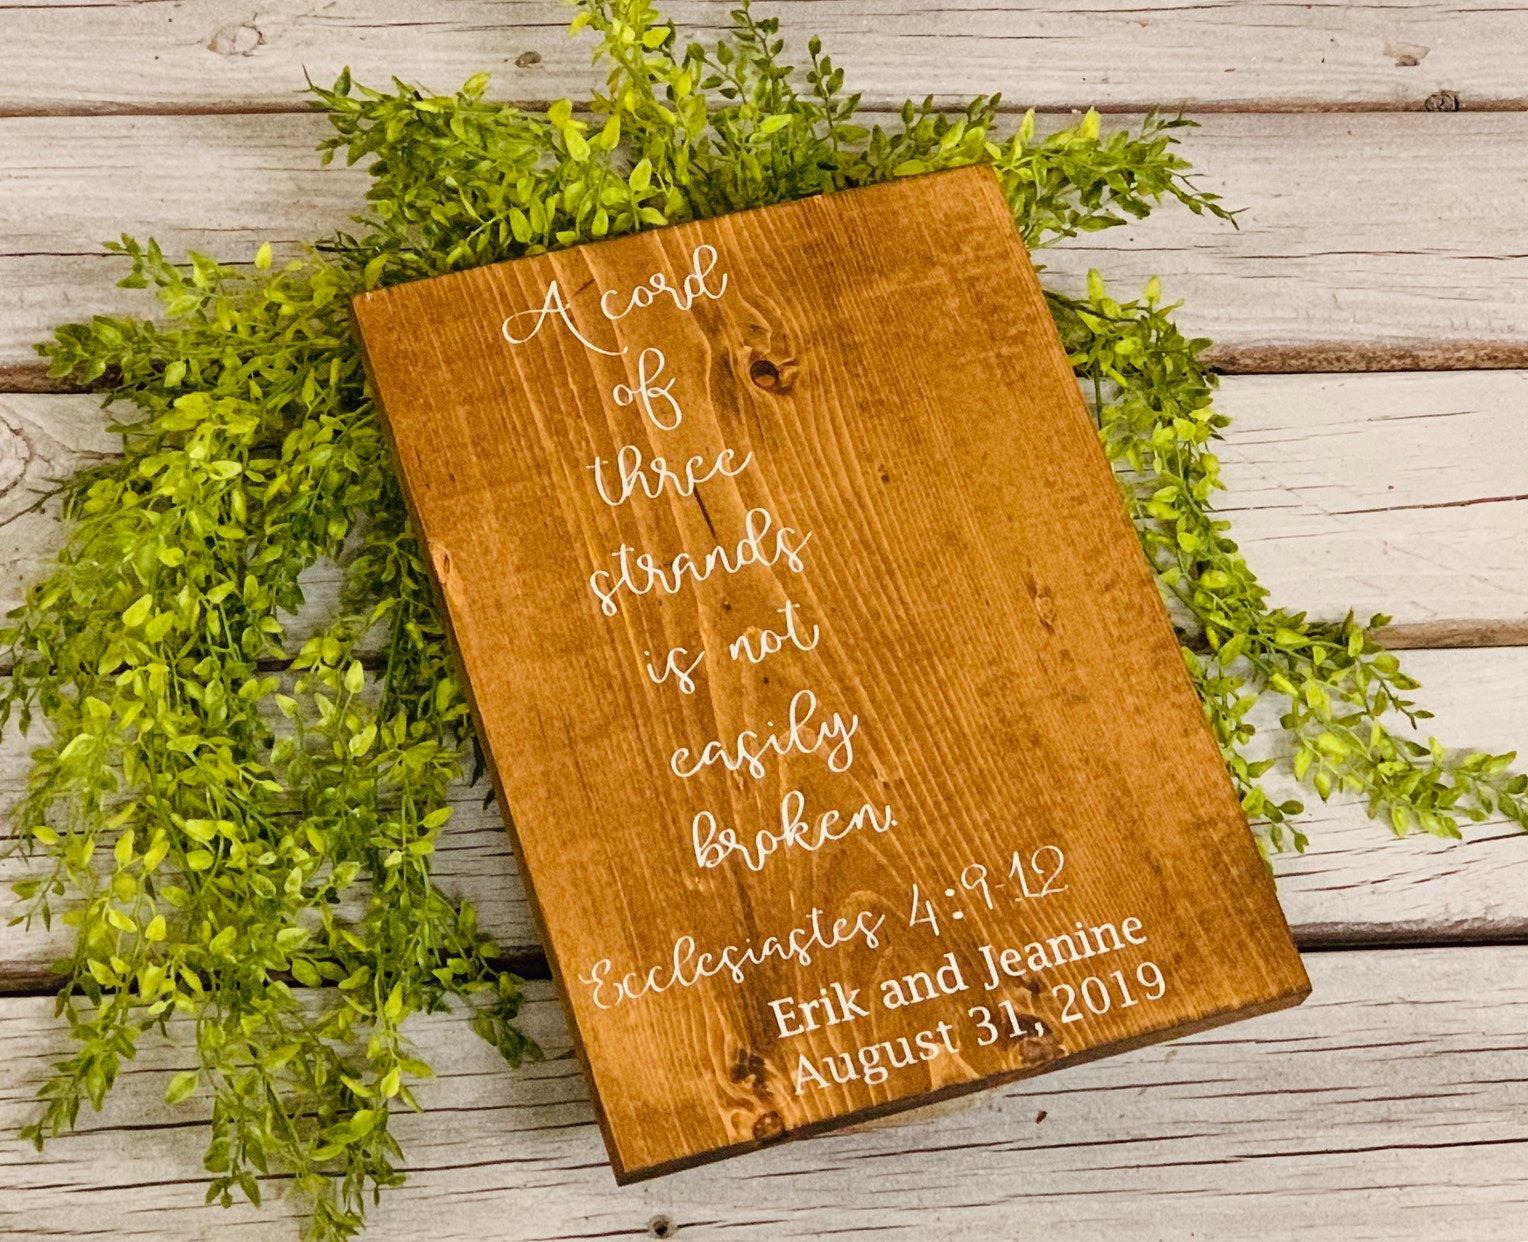 A cord
of
three
strands
is not
easily
broken.
Ecclesiastes 4:9-12
Erik and Jeanine
August 31, 2019